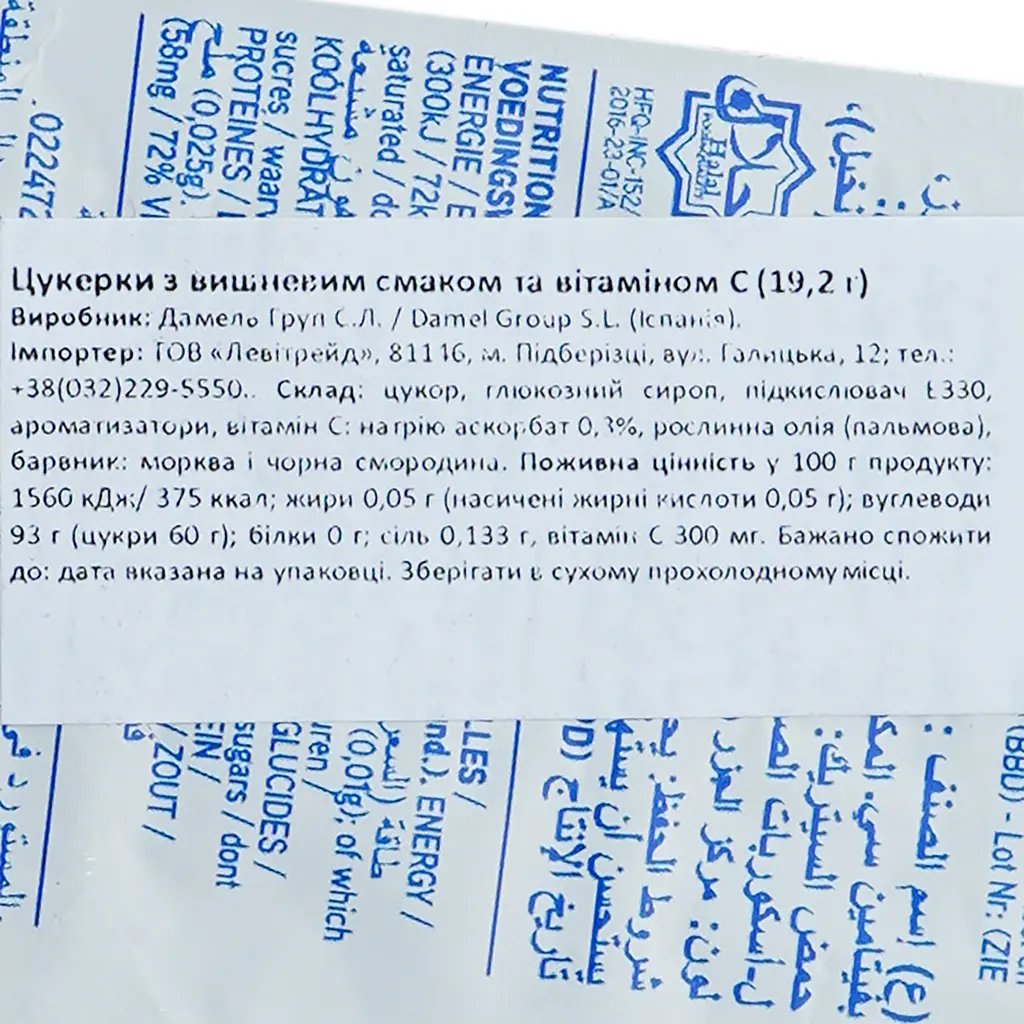 Цукерки з вишневим смаком та вітаміном С (19,2 г)
Виробник: Дамель Груп С.Л. / Damel Group S.L. (Іспанія).
Імпортер: ТОВ «Левітрейд», 81116, м. Підберізці, вул. Галицька, 12; тел.:
+38(032)229-5550.. Склад: цукор, глюкозний сироп, підкислювач Е330,
ароматизатори, вітамін С: натрію аскорбат 0,3%, рослинна олія (пальмова),
барвник: морква і чорна смородина. Поживна цінність у 100 г продукту:
1560 кДж/ 375 ккал; жири 0,05 г (насичені жирні кислоти 0,05 г); вуглеводи
93 г (цукри 60 г); білки 0 г; сіль 0,133 г, вітамін С 300 мг. Бажано спожити
до: дата вказана на упаковці. Зберігати в сухому прохолодному місці.
HFQ-INC-152/
2016-23-01/A
Halal
حلال
NUTRITION
VOEDINGS
ENERGIE /
(300kJ /
saturated /
مشبعة
KOOLHYDRAT
sucres /
PROTEINES /
ملح (0,025g).
(58mg / 72%
LLES /
ENERGY /
طاقة
(0,01g); of which
GLUCIDES /
sugars / dont
/ ZOUT /
(BBD) - Lot Nr: (ZIE
(ع) إسم الصنف :
فيتامين سي.
حمض الستريك:
لون: مركز الجزر
شروط الحفظ:
يستحسن أن
تاريخ الإنتاج